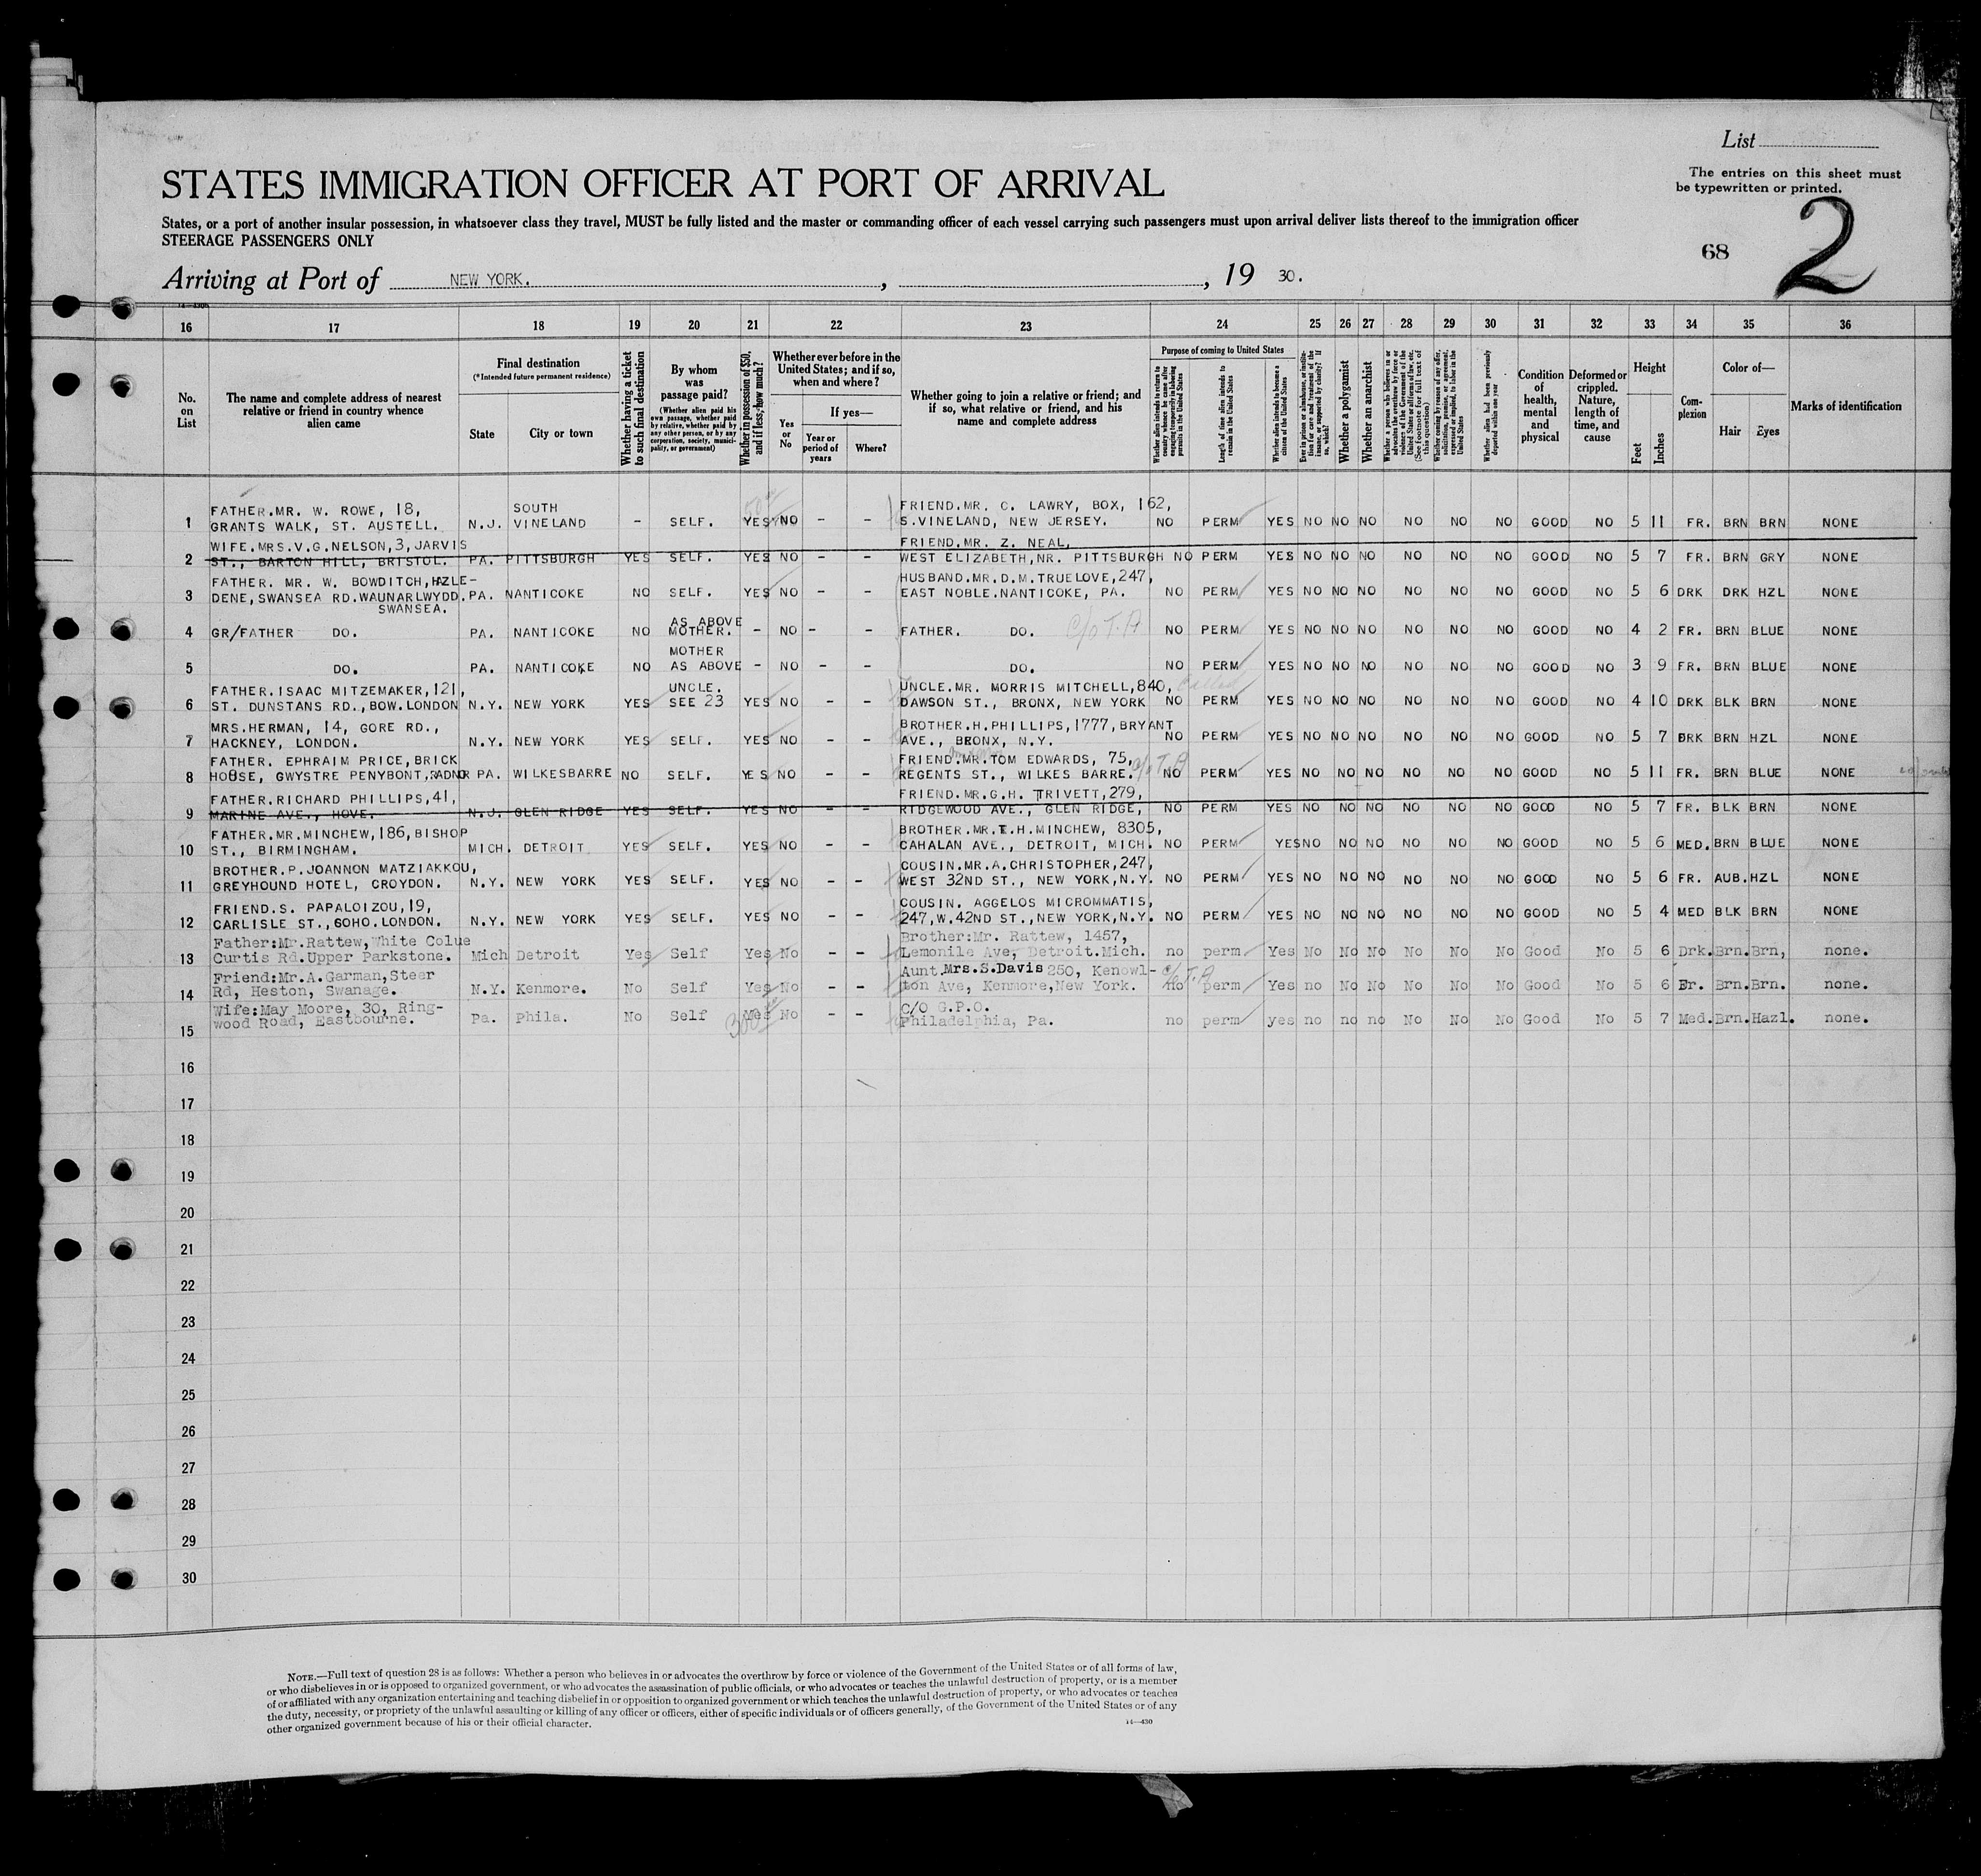 List
The entries on this sheet must
be typewritten or printed.
STATES IMMIGRATION OFFICER AT PORT OF ARRIVAL
States, or a port of another insular possession, in whatsoever class they travel, MUST be fully listed and the master or commanding officer of each vessel carrying such passengers must upon arrival deliver lists thereof to the immigration officer
STEERAGE PASSENGERS ONLY
68 2
Arriving at Port of NEW YORK. , , 19 30.
16 17 18 19 20 21 22 23 24 25 26 27 28 29 30 31 32 33 34 35 36
No. on List
The name and complete address of nearest relative or friend in country whence alien came
Final destination
(*Intended future permanent residence)
State
City or town
Whether having a ticket to such final destination
By whom was passage paid?
(Whether alien paid his own passage, whether paid by relative, whether paid by any other person, or by any corporation, society, municipality, or government)
Whether in possession of $50, and if less, how much?
Whether ever before in the United States; and if so, when and where?
Yes or No
If yes—
Year or period of years
Where?
Whether going to join a relative or friend; and if so, what relative or friend, and his name and complete address
Purpose of coming to United States
Whether alien intends to return to country whence he came after engaging temporarily in laboring pursuits in the United States
Length of time alien intends to remain in the United States
Whether alien intends to become a citizen of the United States
Whether a polygamist
Whether an anarchist
Whether coming by reason of any offer, solicitation, promise, or agreement, expressed or implied, to labor in the United States
Whether alien had been previously deported within one year
Condition of health, mental and physical
Deformed or crippled. Nature, length of time, and cause
Height
Feet
Inches
Complexion
Color of—
Hair
Eyes
Marks of identification
1 FATHER.MR. W. ROWE, 18, GRANTS WALK, ST. AUSTELL. N.J. SOUTH VINELAND - SELF. YES NO - - FRIEND.MR. C. LAWRY, BOX, 162, S.VINELAND, NEW JERSEY. NO PERM YES NO NO NO NO NO NO GOOD NO 5 11 FR. BRN BRN NONE
2 WIFE.MRS.V.G.NELSON,3,JARVIS ST., BARTON HILL, BRISTOL. PA. PITTSBURGH YES SELF. YES NO - - FRIEND.MR. Z. NEAL, WEST ELIZABETH,NR. PITTSBURGH NO PERM YES NO NO NO NO NO NO GOOD NO 5 7 FR. BRN GRY NONE
3 FATHER. MR. W. BOWDITCH,HZLE-DENE,SWANSEA RD.WAUNARLWYDD. SWANSEA. PA. NANTICOKE NO SELF. YES NO - - HUSBAND.MR.D.M.TRUELOVE,247, EAST NOBLE.NANTICOKE, PA. NO PERM YES NO NO NO NO NO NO GOOD NO 5 6 DRK DRK HZL NONE
4 GR/FATHER DO. PA. NANTICOKE NO AS ABOVE MOTHER. - NO - - FATHER. DO. C/o T.A NO PERM YES NO NO NO NO NO NO GOOD NO 4 2 FR. BRN BLUE NONE
5 DO. PA. NANTICOKE NO MOTHER AS ABOVE - NO - - DO. NO PERM YES NO NO NO NO NO NO GOOD NO 3 9 FR. BRN BLUE NONE
6 FATHER.ISAAC MITZEMAKER,121, ST. DUNSTANS RD.,BOW.LONDON N.Y. NEW YORK YES UNCLE. SEE 23 YES NO - - UNCLE.MR. MORRIS MITCHELL,840, DAWSON ST., BRONX, NEW YORK NO PERM YES NO NO NO NO NO NO GOOD NO 4 10 DRK BLK BRN NONE
7 MRS.HERMAN, 14, GORE RD., HACKNEY, LONDON. N.Y. NEW YORK YES SELF. YES NO - - BROTHER.H.PHILLIPS,1777,BRYANT AVE., BRONX, N.Y. NO PERM YES NO NO NO NO NO NO GOOD NO 5 7 DRK BRN HZL NONE
8 FATHER. EPHRAIM PRICE, BRICK HOUSE, GWYSTRE PENYBONT,RADNOR PA. WILKESBARRE NO SELF. YES NO - - FRIEND.MR.TOM EDWARDS, 75, REGENTS ST., WILKES BARRE. c/o T.A NO PERM YES NO NO NO NO NO NO GOOD NO 5 11 FR. BRN BLUE NONE
9 FATHER.RICHARD PHILLIPS,41, MARINE AVE., HOVE. N.J. GLEN RIDGE YES SELF. YES NO - - FRIEND.MR.G.H. TRIVETT,279, RIDGEWOOD AVE., GLEN RIDGE, NO PERM YES NO NO NO NO NO NO GOOD NO 5 7 FR. BLK BRN NONE
10 FATHER.MR.MINCHEW,186,BISHOP ST., BIRMINGHAM. MICH. DETROIT YES SELF. YES NO - - BROTHER.MR.T.H.MINCHEW, 8305, CAHALAN AVE., DETROIT, MICH. NO PERM YES NO NO NO NO NO NO GOOD NO 5 6 MED. BRN BLUE NONE
11 BROTHER.P.JOANNON MATZIAKKOU, GREYHOUND HOTEL, CROYDON. N.Y. NEW YORK YES SELF. YES NO - - COUSIN.MR.A.CHRISTOPHER,247, WEST 32ND ST., NEW YORK,N.Y. NO PERM YES NO NO NO NO NO NO GOOD NO 5 6 FR. AUB.HZL NONE
12 FRIEND.S. PAPALOIZOU,19, CARLISLE ST.,6OHO.LONDON. N.Y. NEW YORK YES SELF. YES NO - - COUSIN. AGGELOS MICROMMATIS, 247,W.42ND ST.,NEW YORK,N.Y. NO PERM YES NO NO NO NO NO NO GOOD NO 5 4 MED BLK BRN NONE
13 Father:Mr.Rattew,White Colue Curtis Rd.Upper Parkstone. Mich Detroit Yes Self Yes No - - Brother:Mr. Rattew, 1457, Lemonile Ave, Detroit.Mich. no perm Yes No No No No No No Good No 5 6 Drk. Brn. Brn, none.
14 Friend:Mr.A.Garman,Steer Rd, Heston, Swanage. N.Y. Kenmore. No Self Yes No - - Aunt.Mrs.S.Davis 250, Kenowl-ton Ave, Kenmore,New York. c/o T.A no perm Yes no No No No No No Good No 5 6 Fr. Brn.Brn. none.
15 Wife:May Moore, 30, Ring-wood Road, Eastbourne. Pa. Phila. No Self 300 Yes No - - C/O G.P.O. Philadelphia, Pa. no perm yes no no no No No No Good No 5 7 Med. Brn.Hazl. none.
16
17
18
19
20
21
22
23
24
25
26
27
28
29
30
NOTE.—Full text of question 28 is as follows: Whether a person who believes in or advocates the overthrow by force or violence of the Government of the United States or of all forms of law,
or who disbelieves in or is opposed to organized government, or who advocates the assassination of public officials, or who advocates or teaches the unlawful destruction of property, or is a member
of or affiliated with any organization entertaining and teaching disbelief in or opposition to organized government or which teaches the unlawful destruction of property, or who advocates or teaches
the duty, necessity, or propriety of the unlawful assaulting or killing of any officer or officers, either of specific individuals or of officers generally, of the Government of the United States or of any
other organized government because of his or their official character.
14—430